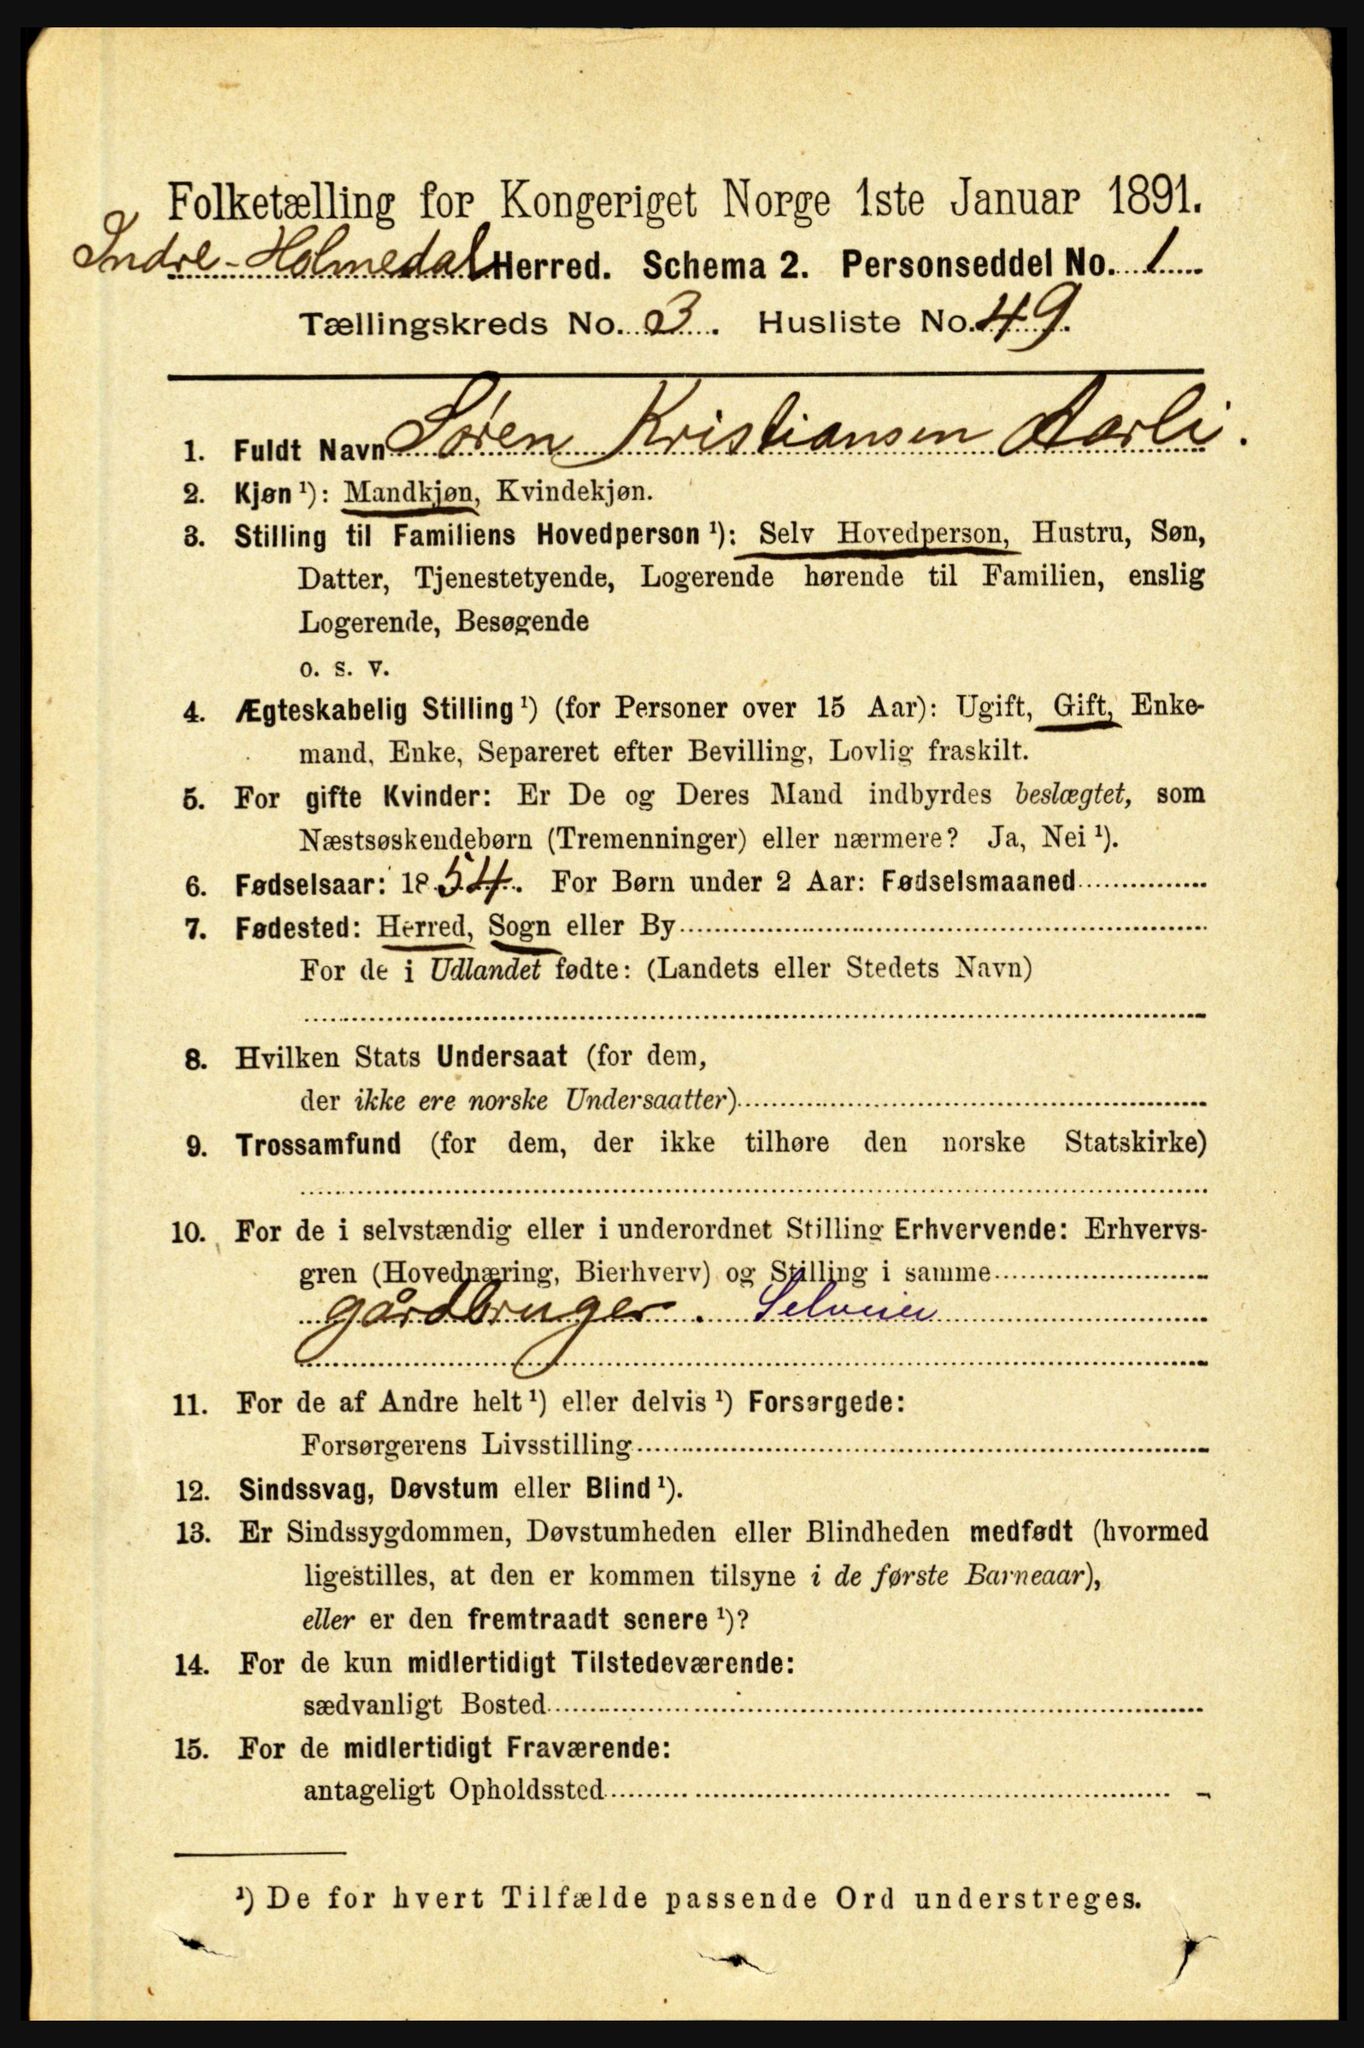 Folketælling for Kongeriget Norge 1ste Januar 1891.
Indre-Holmedal Herred. Schema 2. Personseddel No. 1
Tællingskreds No. 3. Husliste No. 49.
1. Fuldt Navn Søren Kristiansen Aarli.
2. Kjøn ¹): Mandkjøn, Kvindekjøn.
3. Stilling til Familiens Hovedperson ¹): Selv Hovedperson, Hustru, Søn,
Datter, Tjenestetyende, Logerende hørende til Familien, enslig
Logerende, Besøgende
o. s. v.
4. Ægteskabelig Stilling ¹) (for Personer over 15 Aar): Ugift, Gift, Enke-
mand, Enke, Separeret efter Bevilling, Lovlig fraskilt.
5. For gifte Kvinder: Er De og Deres Mand indbyrdes beslægtet, som
Næstsøskendebørn (Tremenninger) eller nærmere? Ja, Nei ¹).
6. Fødselsaar: 1854. For Børn under 2 Aar: Fødselsmaaned
7. Fødested: Herred, Sogn eller By
For de i Udlandet fødte: (Landets eller Stedets Navn)
8. Hvilken Stats Undersaat (for dem,
der ikke ere norske Undersaatter)
9. Trossamfund (for dem, der ikke tilhøre den norske Statskirke)
10. For de i selvstændig eller i underordnet Stilling Erhvervende: Erhvervs-
gren (Hovednæring, Bierhverv) og Stilling i samme
gårdbruger. Selveier
11. For de af Andre helt ¹) eller delvis ¹) Forsørgede:
Forsørgerens Livsstilling
12. Sindssvag, Døvstum eller Blind ¹).
13. Er Sindssygdommen, Døvstumheden eller Blindheden medfødt (hvormed
ligestilles, at den er kommen tilsyne i de første Barneaar),
eller er den fremtraadt senere ¹)?
14. For de kun midlertidigt Tilstedeværende:
sædvanligt Bosted
15. For de midlertidigt Fraværende:
antageligt Opholdssted
¹) De for hvert Tilfælde passende Ord understreges.